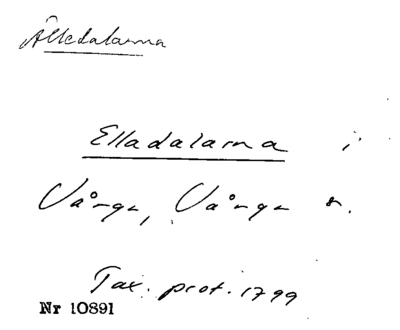 Älledalarna
Elladalarna i
Vånga, Vånga s.
Tax. prot. 1799
Nr 10891